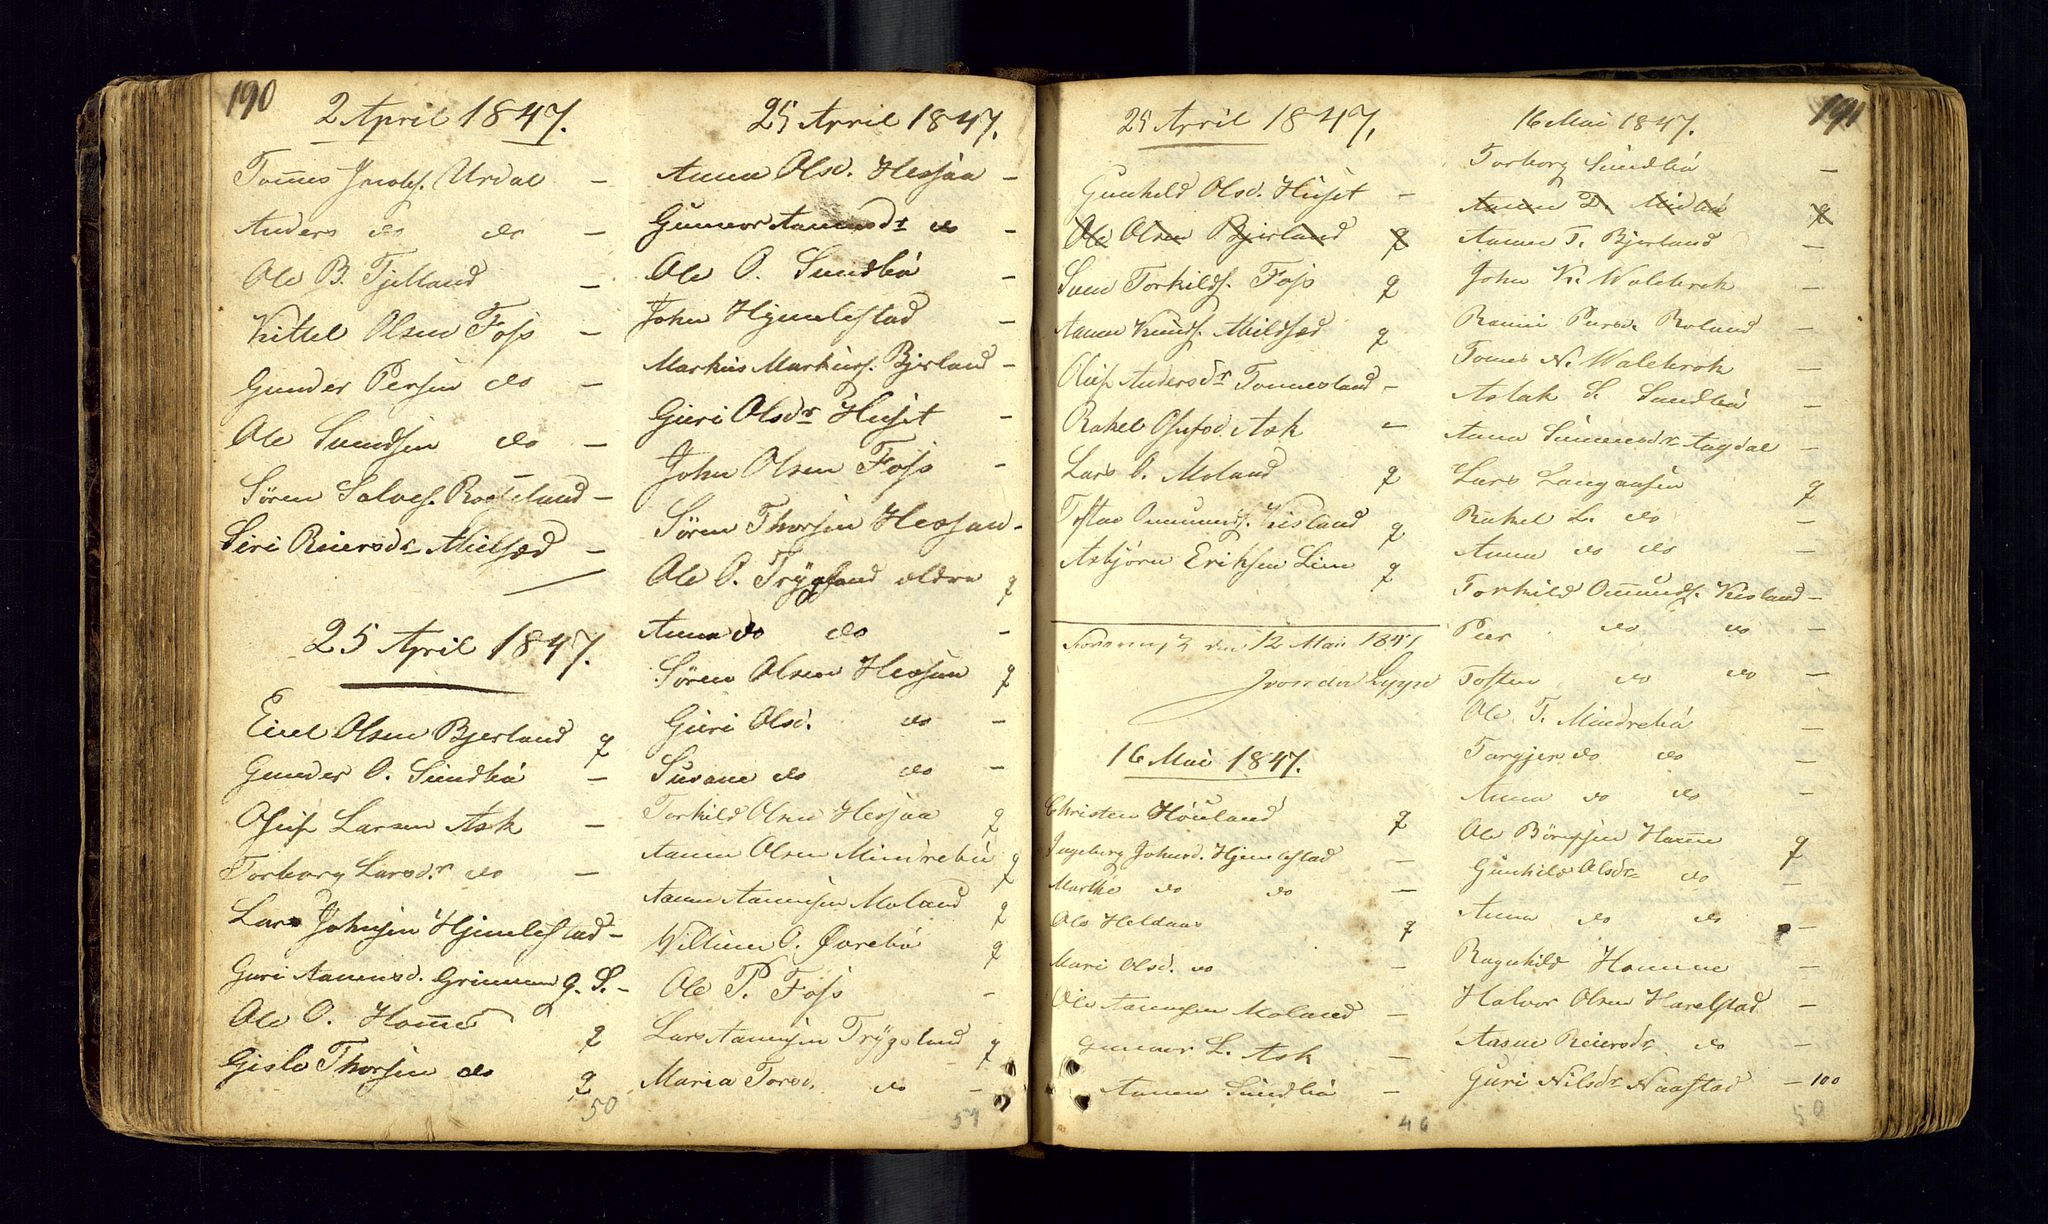 190
2 April 1847.
Tomes Jacobs. Urdal –
Anders do do –
Ole B. Tjelland –
Kittel Olsen Foss –
Gunder Persen do –
Ole Svendsen do –
Sören Salves. Rosseland –
Siri Reiersdr. Mielsæd –
25 April 1847.
Eivel Olsen Bjerland q
Gunder O. Sundbö –
Osuf Larsen Ask –
Torborg Larsdr. do –
Lars Johnsen Hjemlestad –
Guri Aanensd. Grimmen q. S. –
Ole O. Homme q
Gisle Thorsen do q
50
25 April 1847.
Aanen Olsd. Hessaa –
Gunvor Aanensdr do –
Ole O. Sundbö –
John Hjemlestad –
Markus Markuss. Bjerland –
Guri Olsdr Huset –
John Olsen Foss –
Sören Thorsen Hessaa –
Ole O. Trygsland ældre q
Anna do do –
Sören Olsen Hessaa q
Guri Olsd. do –
Susane do do –
Torkild Olsen Hessaa q
Aanen Olsen Mindrebö q
Aanen Aanensen Moland q
Villum O. Övrebö q
Ole P. Foss –
Lars Aanensen Trygsland q
Maria Torsd. do –
54
25 April 1847,
Gunhild Olsd. Huset –
Ole Olsen Bjerland q
Sven Torkilds. Foss q
Aanen Knuds. Mildsæd q
Oluf Andersdr Tonnesland –
Rakel Osufsd. Ask –
Lars O. Moland q
Tostan Ommunds. Kisland q
Asbjörn Eriksen Lien q
den 12 Mai 1847
16 Mai 1847.
Christen Houland q
Ingeborg Johnsd. Hjemlestad –
Marthe do do –
Ole Heldaas q
Mari Olsd. do –
Ole Aanensen Moland –
Gunvor L. Ask –
Aanen Sundbö –
46
16 Mai 1847.
191
Torborg Sundbö –
Aanen T. Bjerland –
John K. Walebrok –
Rannei Persdr Roland –
Tomes N. Walebrok –
Aslak S. Sundbö –
Anna Simensdr Aagdal –
Lars Langaasen q
Rakel L. do –
Anna do do –
Torkild Ommunds. Kisland –
Peer do do –
Tosten do do –
Ole T. Mindrebö –
Torgjer do do –
Anna do do –
Ole Börresen Homme q
Gunhild Olsdr do –
Anna do do –
Ragnhild Homme –
Halvor Olsen Harelstad –
Aasne Reiersdr do –
Guri Nilsdr Naastad – 100
50